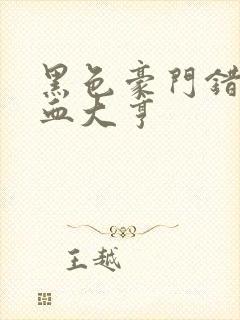 黑色豪門錯
血大亨
王越